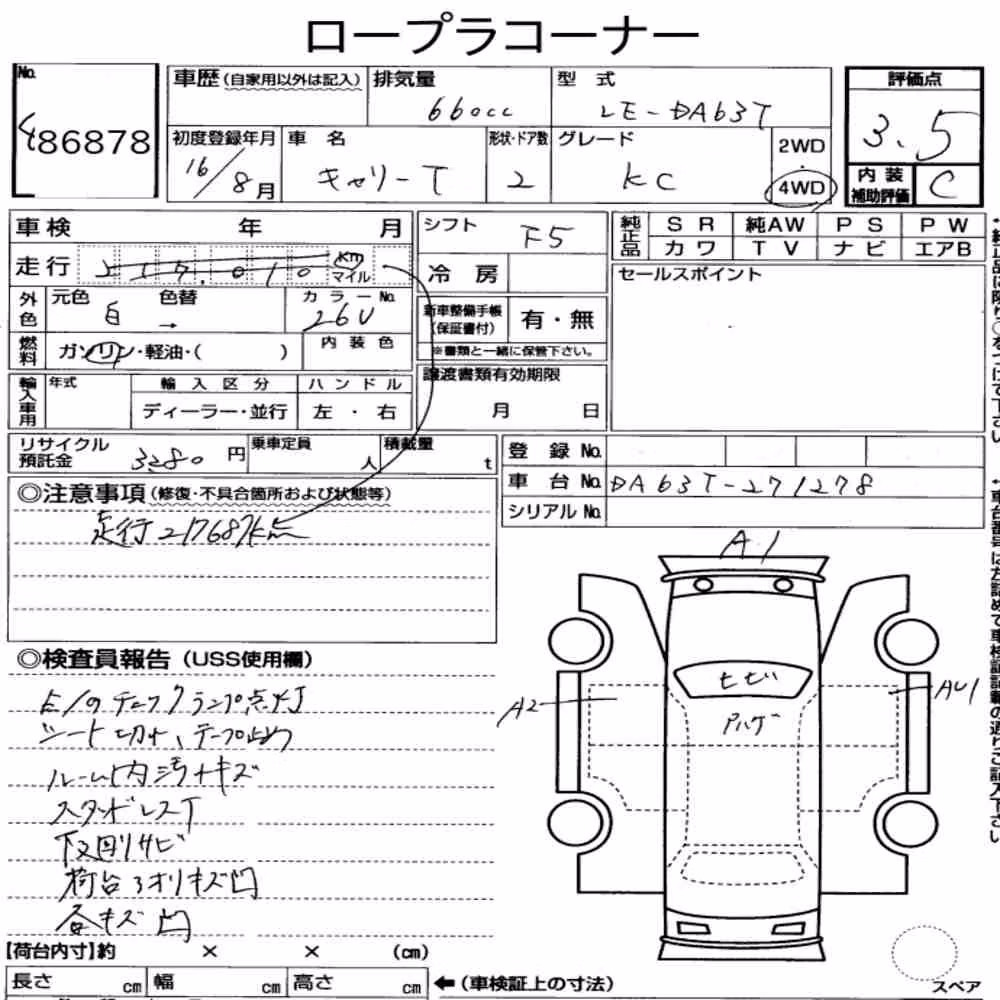 ロープラコーナー
No. 486878
車歴(自家用以外は記入) 排気量 660cc 型式 LE-DA63T
評価点 3.5
初度登録年月 16/8月 車名 キャリーT 形状・ドア数 2 グレード KC 2WD・4WD
内装補助評価 C
車検 年 月
シフト F5
純正品 SR 純AW PS PW
カワ TV ナビ エアB
走行 km マイル
冷房
セールスポイント
外色 元色 白 色替 → カラーNo. 26U
新車整備手帳(保証書付) 有・無
※書類と一緒に保管下さい。
燃料 ガソリン・軽油・( ) 内装色
輸入車用 年式 輸入区分 ハンドル
ディーラー・並行 左・右
譲渡書類有効期限
月 日
リサイクル預託金 3280円 乗車定員 人 積載量 t
登録No.
車台No. DA63T-271278
シリアルNo.
◎注意事項(修復・不具合箇所および状態等)
走行217687km
A1
◎検査員報告(USS使用欄)
E/Gチェックランプ点灯
シート切れ、テープ止め
ルーム内汚れキズ
スタッドレスT
下回りサビ
荷台3オリキズ凹
各キズ凹
ヒビ
アハゲ
A2
AU1
【荷台内寸】約 × × (cm)
長さ cm 幅 cm 高さ cm
←(車検証上の寸法)
スペア